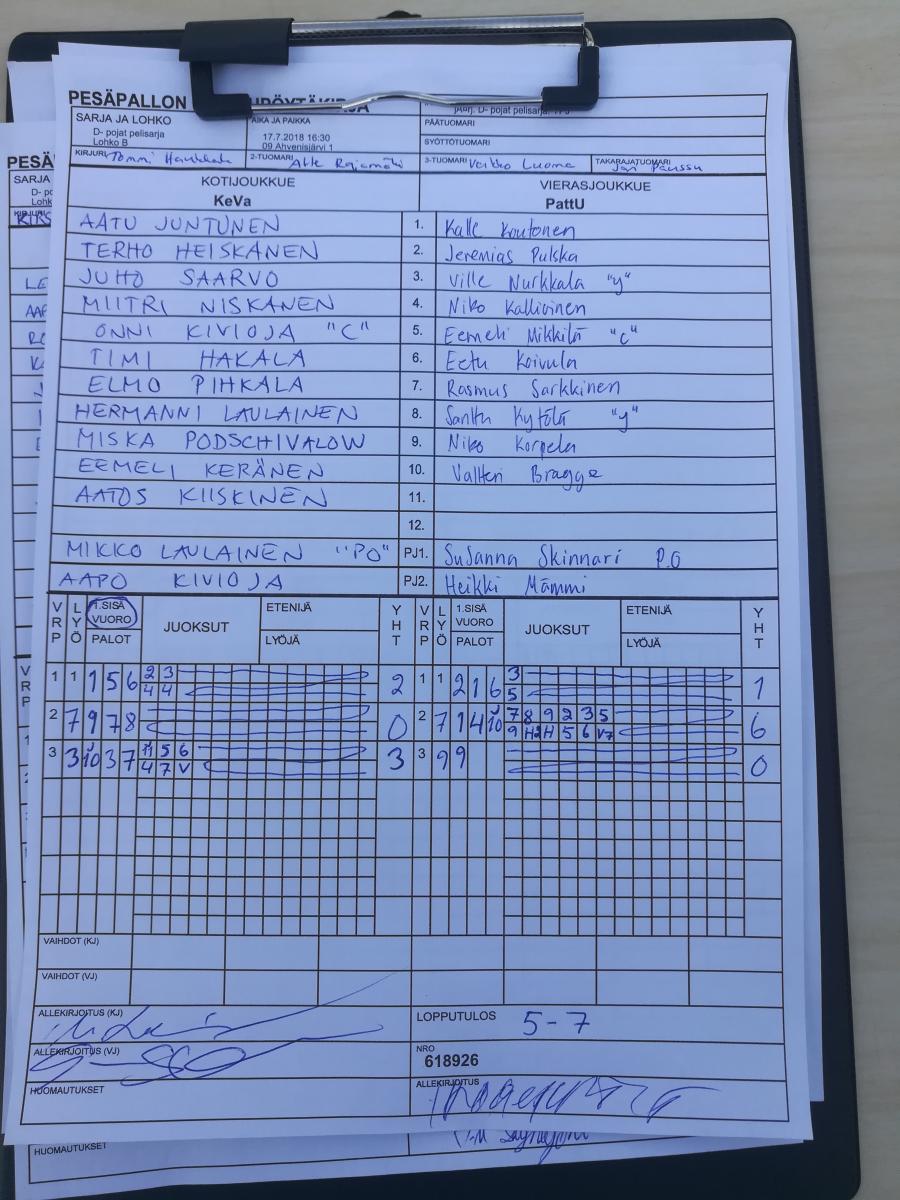 PESÄPALLON
SARJA JA LOHKO
D- pojat pelisarja
Lohko B
AIKA JA PAIKKA
17.7.2018 16:30
09 Ahvenisjärvi 1
D- pojat pelisarja
PÄÄTUOMARI
SYÖTTÖTUOMARI
KIRJURI Tommi
2-TUOMARI
3-TUOMARI Veikko Luoma
TAKARAJATUOMARI
KOTIJOUKKUE VIERASJOUKKUE
KeVa PattU
AATU JUNTUNEN 1. Kalle Koutonen
TERHO HEISKANEN 2. Jeremias Pulska
JUHO SAARVO 3. Ville Nurkkala "y"
MIITRI NISKANEN 4. Niko Kallioinen
ONNI KIVIOJA "C" 5. Eemeli Mikkilä "c"
TIMI HAKALA 6. Eetu Koivula
ELMO PIHKALA 7. Rasmus Sarkkinen
HERMANNI LAULAINEN 8. Santtu Kytölä "y"
MISKA PODSCHIVALOW 9. Niko Korpela
EEMELI KERÄNEN 10. Valtteri Bragge
AATOS KIISKINEN 11.
12.
MIKKO LAULAINEN "PO" PJ1. Susanna Skinnari P.O
AAPO KIVIOJA PJ2. Heikki Mämmi
VRP LYÖ 1.SISÄ VUORO PALOT JUOKSUT ETENIJÄ LYÖJÄ YHT VRP LYÖ 1.SISÄ VUORO PALOT JUOKSUT ETENIJÄ LYÖJÄ YHT
1 1 1 5 6 2 3 2 1 1 2 1 6 3 1
4 4 5
2 7 9 7 8 0 2 7 1 4 10 7 8 9 2 3 5 6
9 H2 H 5 6 V7
3 3 10 3 7 11 5 6 3 3 9 9 0
4 7 V
VAIHDOT (KJ)
VAIHDOT (VJ)
ALLEKIRJOITUS (KJ) LOPPUTULOS 5-7
ALLEKIRJOITUS (VJ) NRO
618926
HUOMAUTUKSET ALLEKIRJOITUS
HUOMAUTUKSET